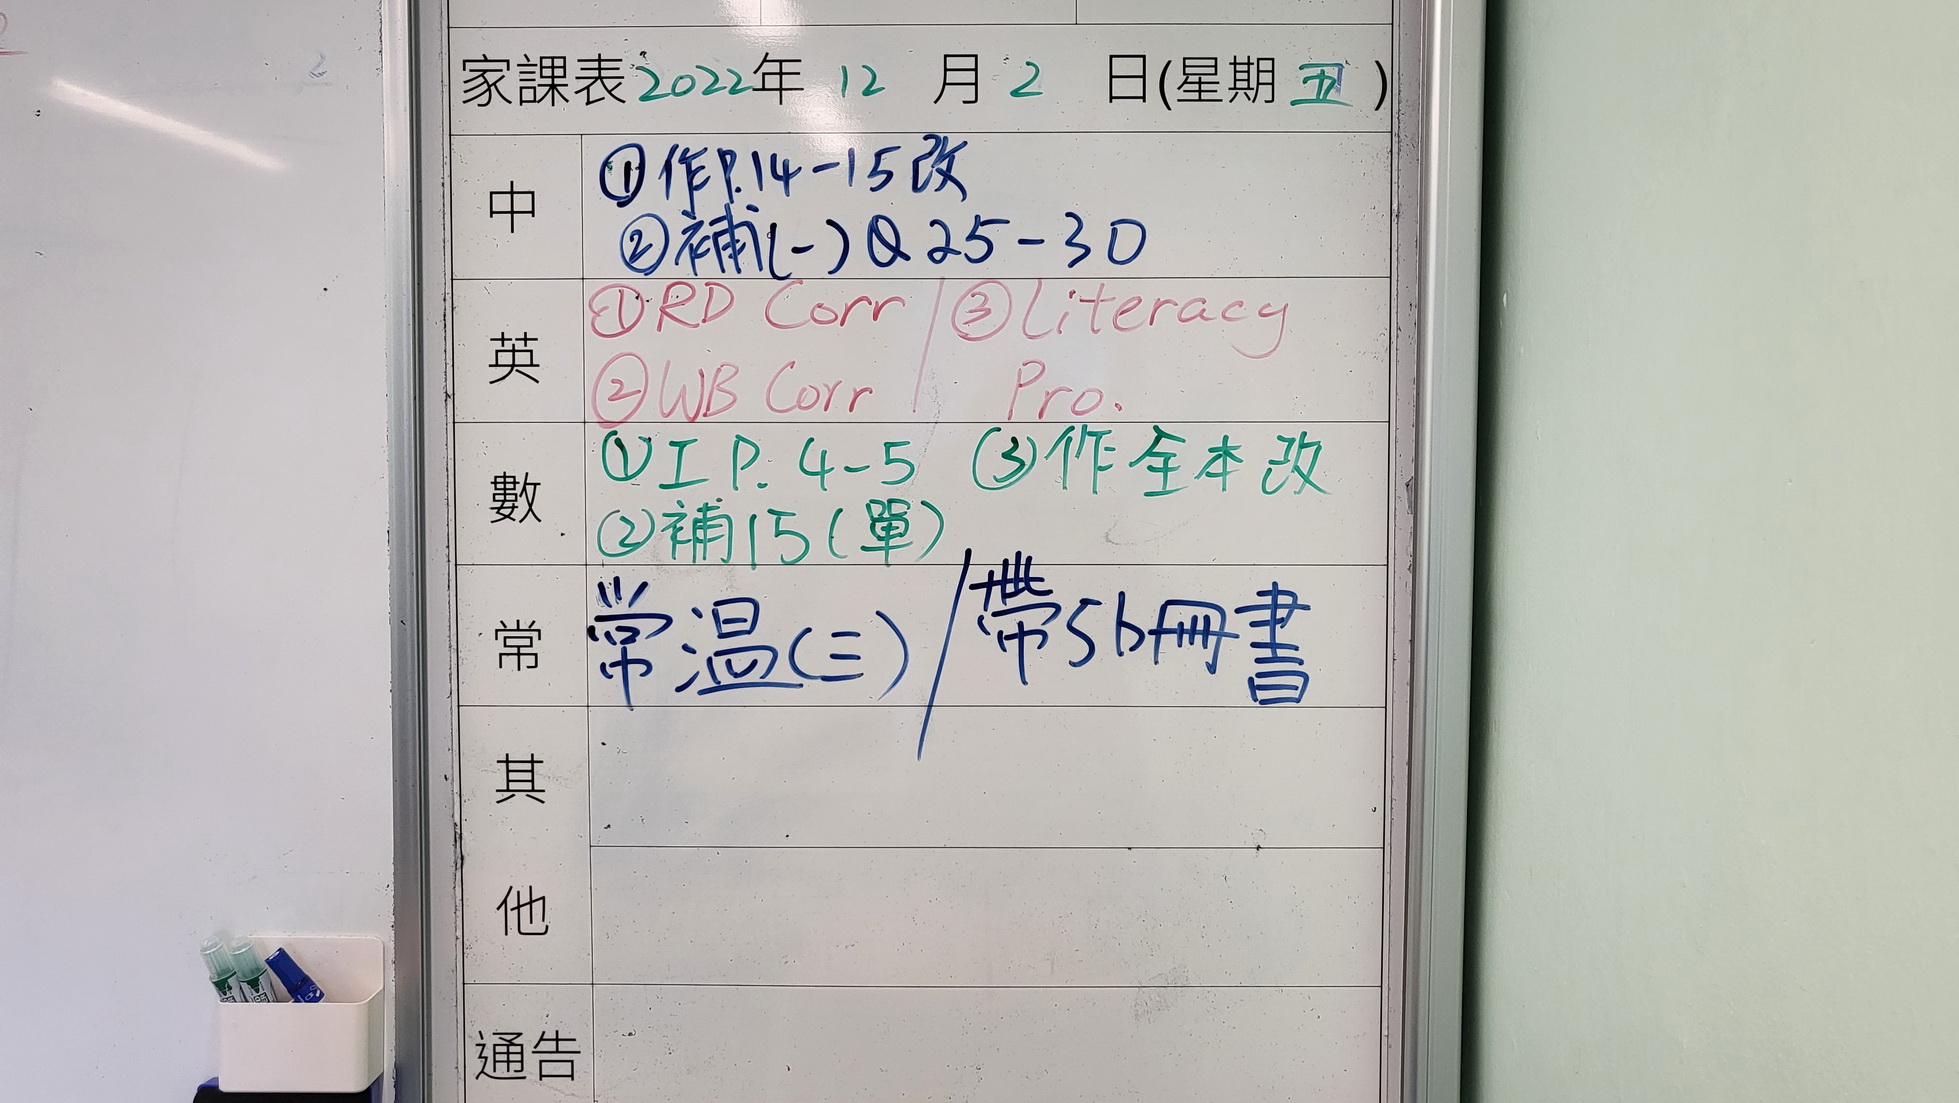 家課表2022年 12 月 2 日(星期 五 )
中
①作P.14-15改
②補(一)Q25-30
英
①RD Corr / ③Literacy
②WB Corr / Pro.
數
①工P.4-5 ③作全本改
②補15(單)
常
常溫(三)/帶5b冊書
其
他
通告